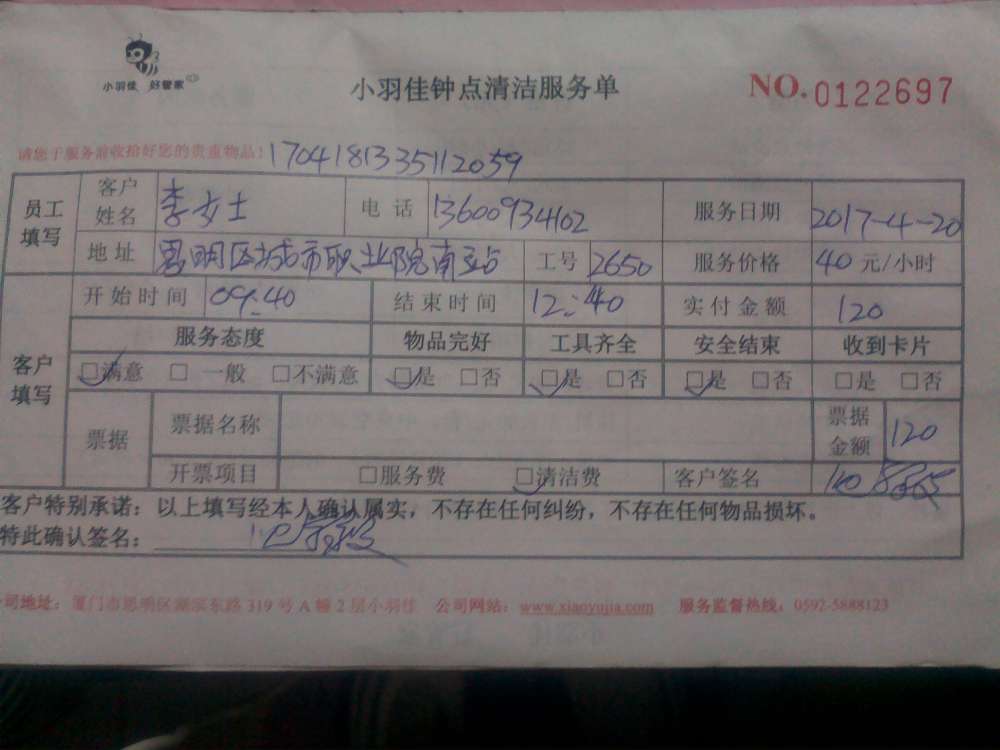 小羽佳 好管家
小羽佳钟点清洁服务单
NO.0122697
请您于服务前收拾好您的贵重物品! 17041813335112059
员工填写 客户姓名 李女士 电话 13600934102 服务日期 2017-4-20
地址 思明区城市职业院南站 工号 2650 服务价格 40 元/小时
客户填写 开始时间 09:40 结束时间 12:40 实付金额 120
服务态度 物品完好 工具齐全 安全结束 收到卡片
☑满意 □一般 □不满意 ☑是 □否 ☑是 □否 ☑是 □否 □是 □否
票据 票据名称 票据金额 120
开票项目 □服务费 ☑清洁费 客户签名
客户特别承诺:以上填写经本人确认属实,不存在任何纠纷,不存在任何物品损坏。
特此确认签名:
公司地址:厦门市思明区湖滨东路 319 号 A 幢 2 层小羽佳 公司网站:www.xiaoyujia.com 服务监督热线:0592-5888123